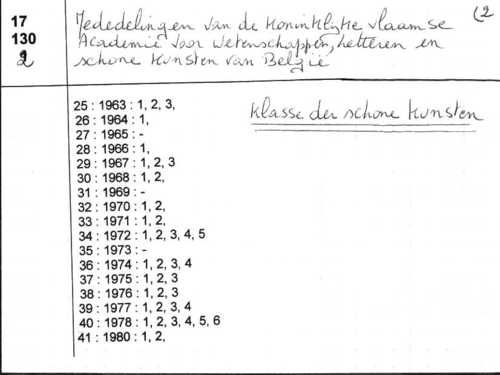 17
130
2
Mededelingen van de Koninklyke vlaamse
Academie voor Wetenschappen, Letteren en
schone Kunsten van België
(2
Klasse der schone Kunsten
25 : 1963 : 1, 2, 3,
26 : 1964 : 1,
27 : 1965 : -
28 : 1966 : 1,
29 : 1967 : 1, 2, 3
30 : 1968 : 1, 2,
31 : 1969 : -
32 : 1970 : 1, 2,
33 : 1971 : 1, 2,
34 : 1972 : 1, 2, 3, 4, 5
35 : 1973 : -
36 : 1974 : 1, 2, 3, 4
37 : 1975 : 1, 2, 3
38 : 1976 : 1, 2, 3
39 : 1977 : 1, 2, 3, 4
40 : 1978 : 1, 2, 3, 4, 5, 6
41 : 1980 : 1, 2,